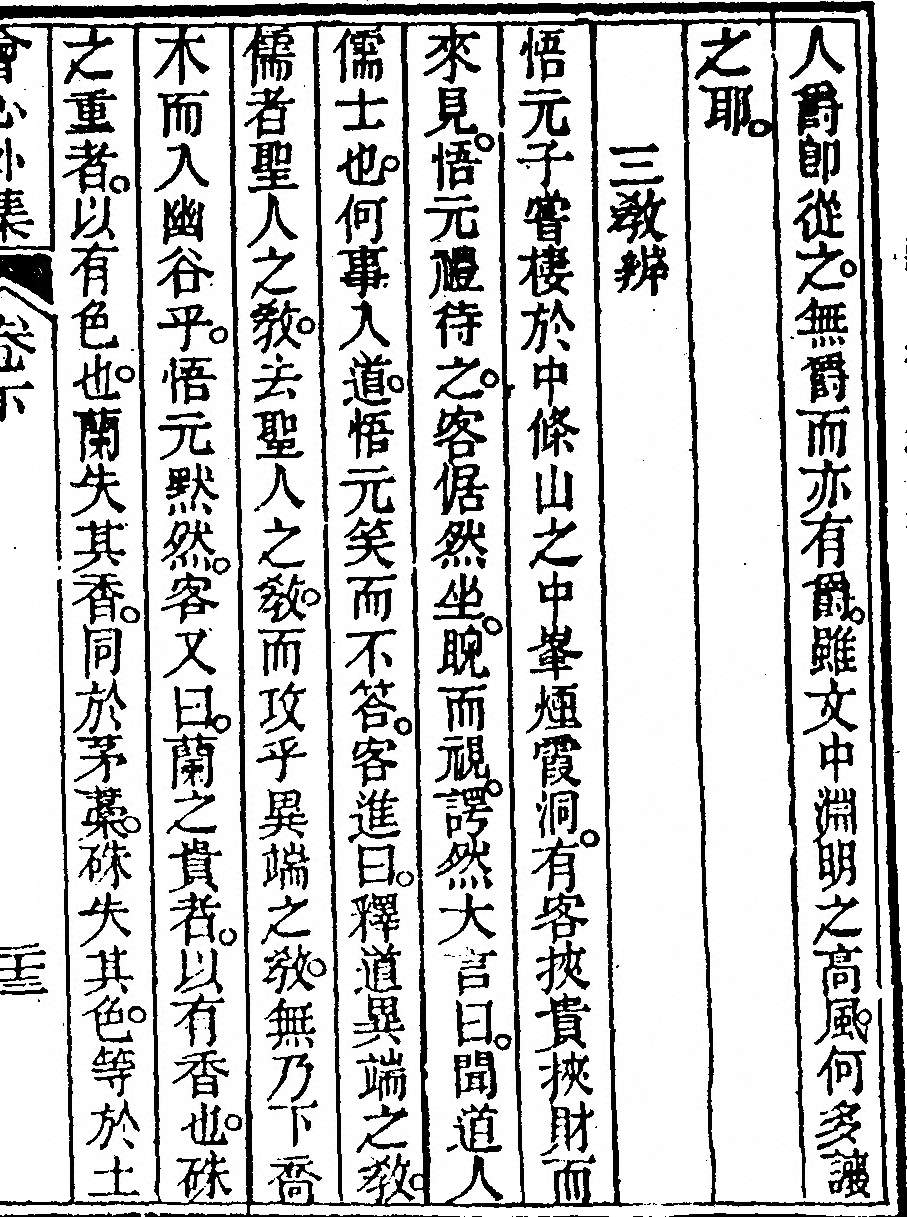 人爵卽從之。無爵而亦有爵。雖文中淵明之高風。何多讓
之耶。
三敎辨
悟元子嘗棲於中條山之中峯煙霞洞。有客挾貴挾財而
來見。悟元禮待之。客倨然坐。睨而視。諤然大言曰。聞道人
儒士也。何事入道。悟元笑而不答。客進曰。釋道異端之敎。
儒者聖人之敎。去聖人之敎。而攻乎異端之敎。無乃下喬
木而入幽谷乎。悟元默然。客又曰。蘭之貴者。以有香也。硃
之重者。以有色也。蘭失其香。同於茅藁。硃失其色。等於土
會心外集 卷下 二十三